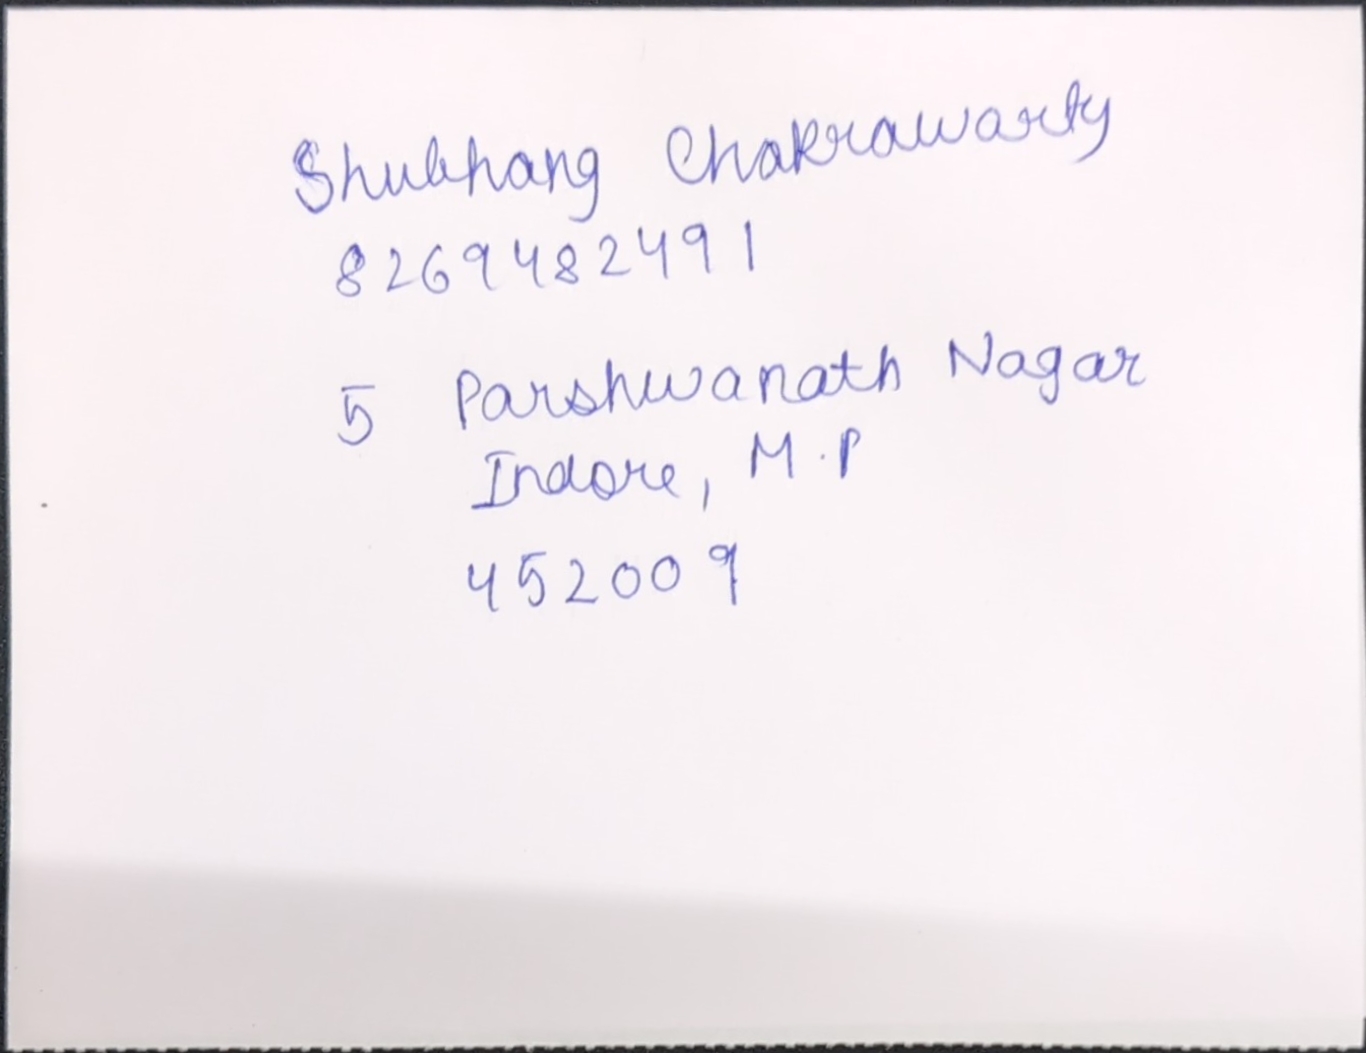 Shubhang Chakrawarty
8269482491
5 Parshwanath Nagar
Indore, M.P
452009